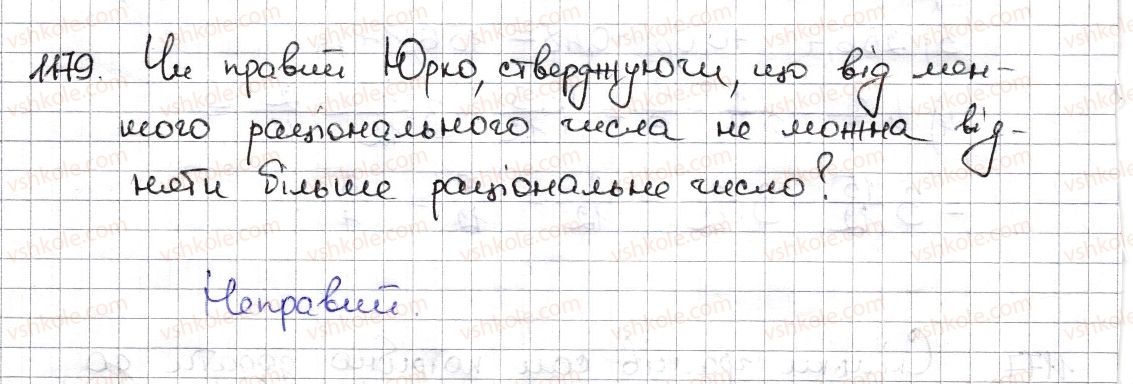 1179. Чи правий Юрко, стверджуючи, що від мен-
шого раціонального числа не можна від-
няти більше раціональне число?
Неправий.